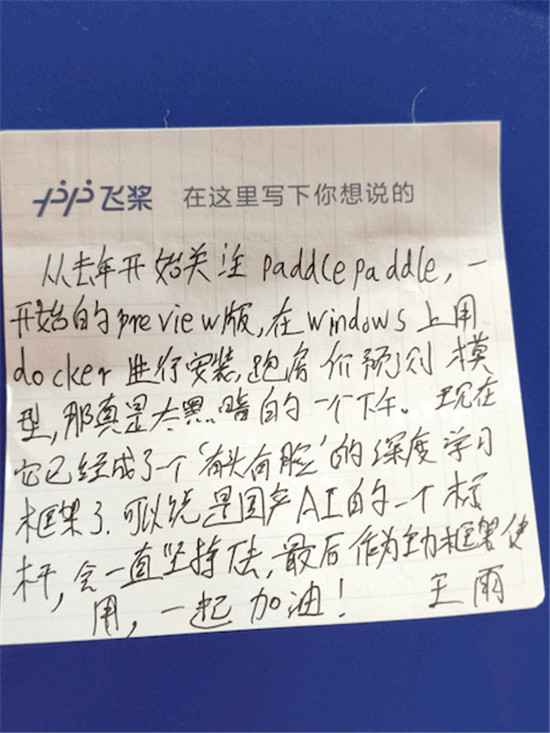 飞桨 在这里写下你想说的
从去年开始关注 paddlepaddle,一
开始的preview版,在windows上用
docker 进行安装,跑房价预测模
型,那真是太黑暗的一个下午。现在
它已经成了一个‘有头有脸’的深度学习
框架了.可以说是国产AI的一个标
杆,会一直坚持下去,最后作为主力框架使
用,一起加油! 王雨